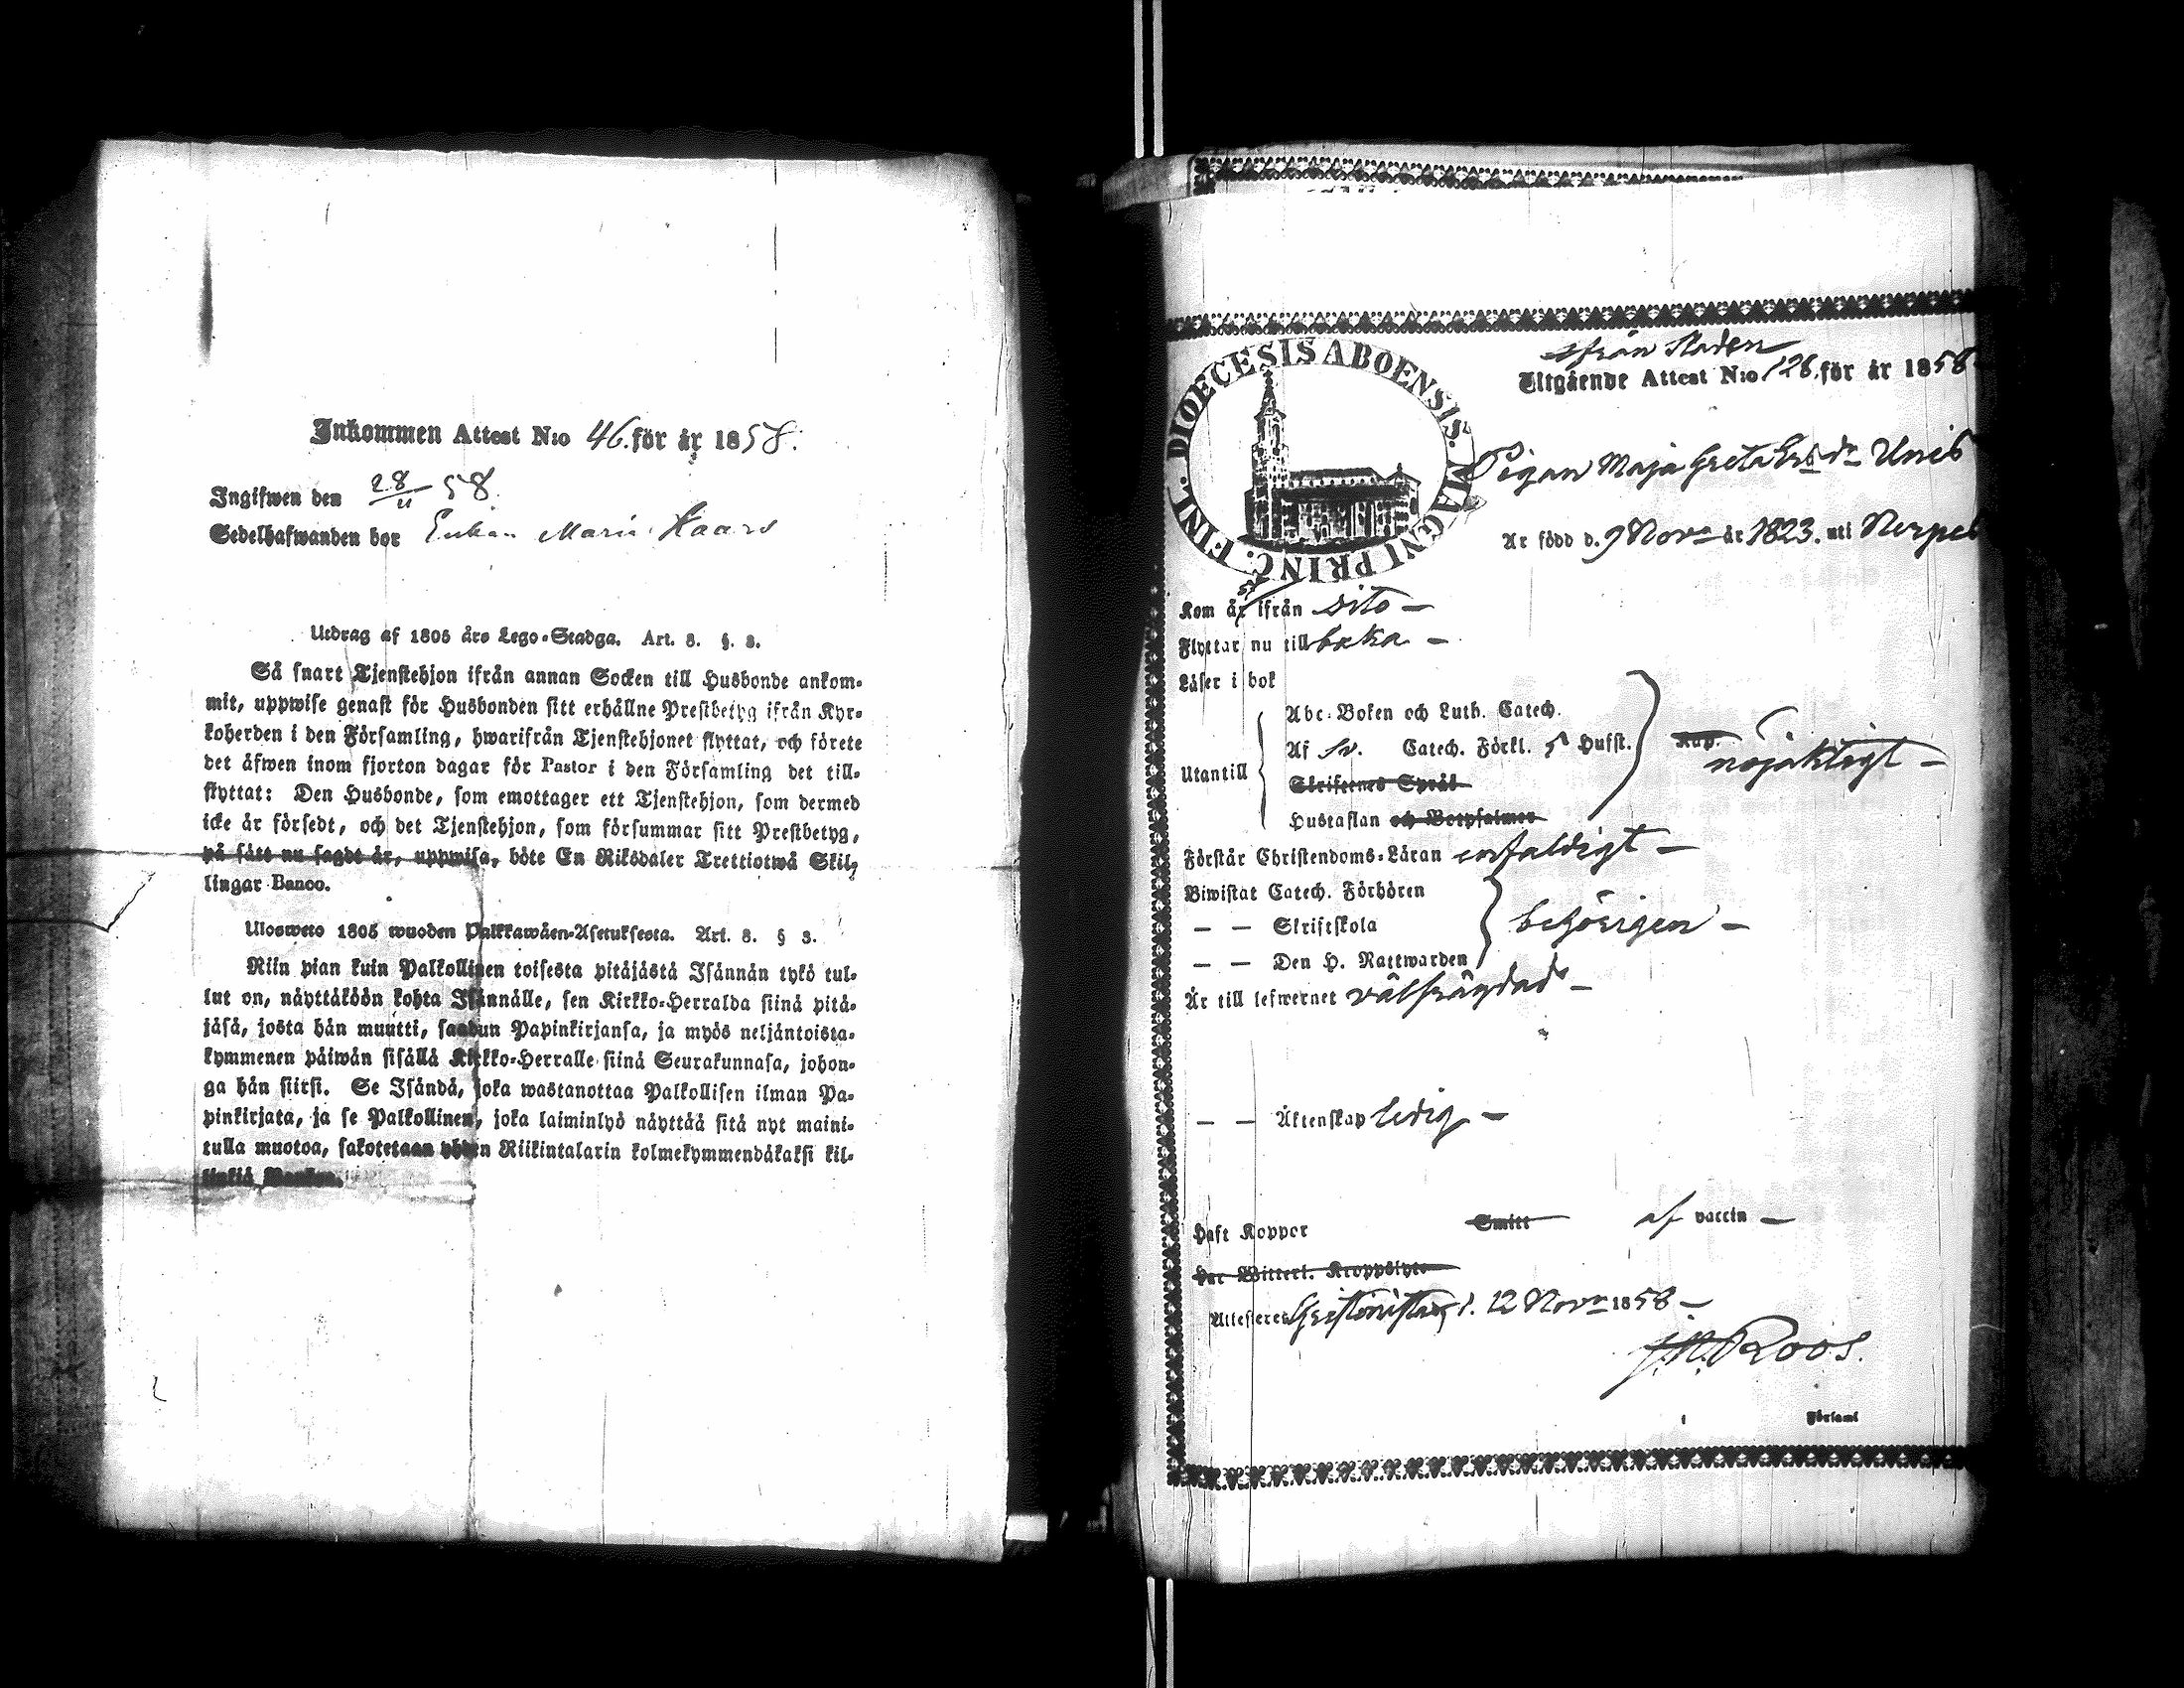 Inkommen Attest N:o 46. för år 1858.
Ingifwen den 28/11 58.
Sedelhafwanden bor Enkan Maria Haars
Utdrag af 1805 års Lego-Stadga. Art. 8. §. 3.
Så snart Tjenstehjon ifrån annan Socken till Husbonde ankom-
mit, uppwise genast för Husbonden sitt erhållne Prestbetyg ifrån Kyr-
koherden i den Församling, hwarifrån Tjenstehjonet flyttat, och förete
det äfwen inom fjorton dagar för Pastor i den Församling det till-
flyttat: Den Husbonde, som emottager ett Tjenstehjon, som dermed
icke är försedt, och det Tjenstehjon, som försummar sitt Prestbetyg,
på sätt nu sagdt är, uppwisa, böte En Riksdaler Trettiotwå Skil-
lingar Banco.
Ulosweto 1805 wuoden Palkkawäen-Asetuksesta. Art. 8. § 3.
Niin pian kuin Palkollinen toisesta pitäjästä Isännän tykö tul-
lut on, näyttäköön kohta Isännälle, sen Kirkko-Herralda siinä pitä-
jäsä, josta hän muutti, saadun Papinkirjansa, ja myös neljäntoista-
kymmenen päiwän sisällä Kirkko-Herralle siinä Seurakunnasa, johon-
ga hän siirsi. Se Isändä, joka wastanottaa Palkollisen ilman Pa-
pinkirjata, ja se Palkollinen, joka laiminlyö näyttää sitä nyt maini-
tulla muotoa, sakotetaan yhden Riikintalarin kolmekymmendäkaksi kil-
linkiä Bankoa.
DIOECESIS ABOENSIS. MAGNI PRINC. FINL.
ifrån staden
Utgående Attest N:o 126. för år 1858
Pigan Maja Greta Ersdr Unis
Är född d. 9 Novr år 1823. uti Nerpes
Kom år ifrån dito –
Flyttar nu tillbaka –
Läser i bok
Utantill
Abc-Boken och Luth. Catech.
Af Sv. Catech. Förkl. 5 Hufst.
nöjaktigt –
Skriftenes Språk
Hustaflan och Botpsalmer
Förstår Christendoms-Läran enfaldigt –
Biwistat Catech. Förhören
— — Skriftskola
behörigen –
— — Den H. Nattwarden
Är till lefwernet välfrägdad –
— — Äktenskap ledig –
Haft Koppor Smitt af vaccin –
Har Witterl. Kroppslyte
Attesteres Christinestad d. 12 Novr 1858 –
J. N. Roos.
Församl